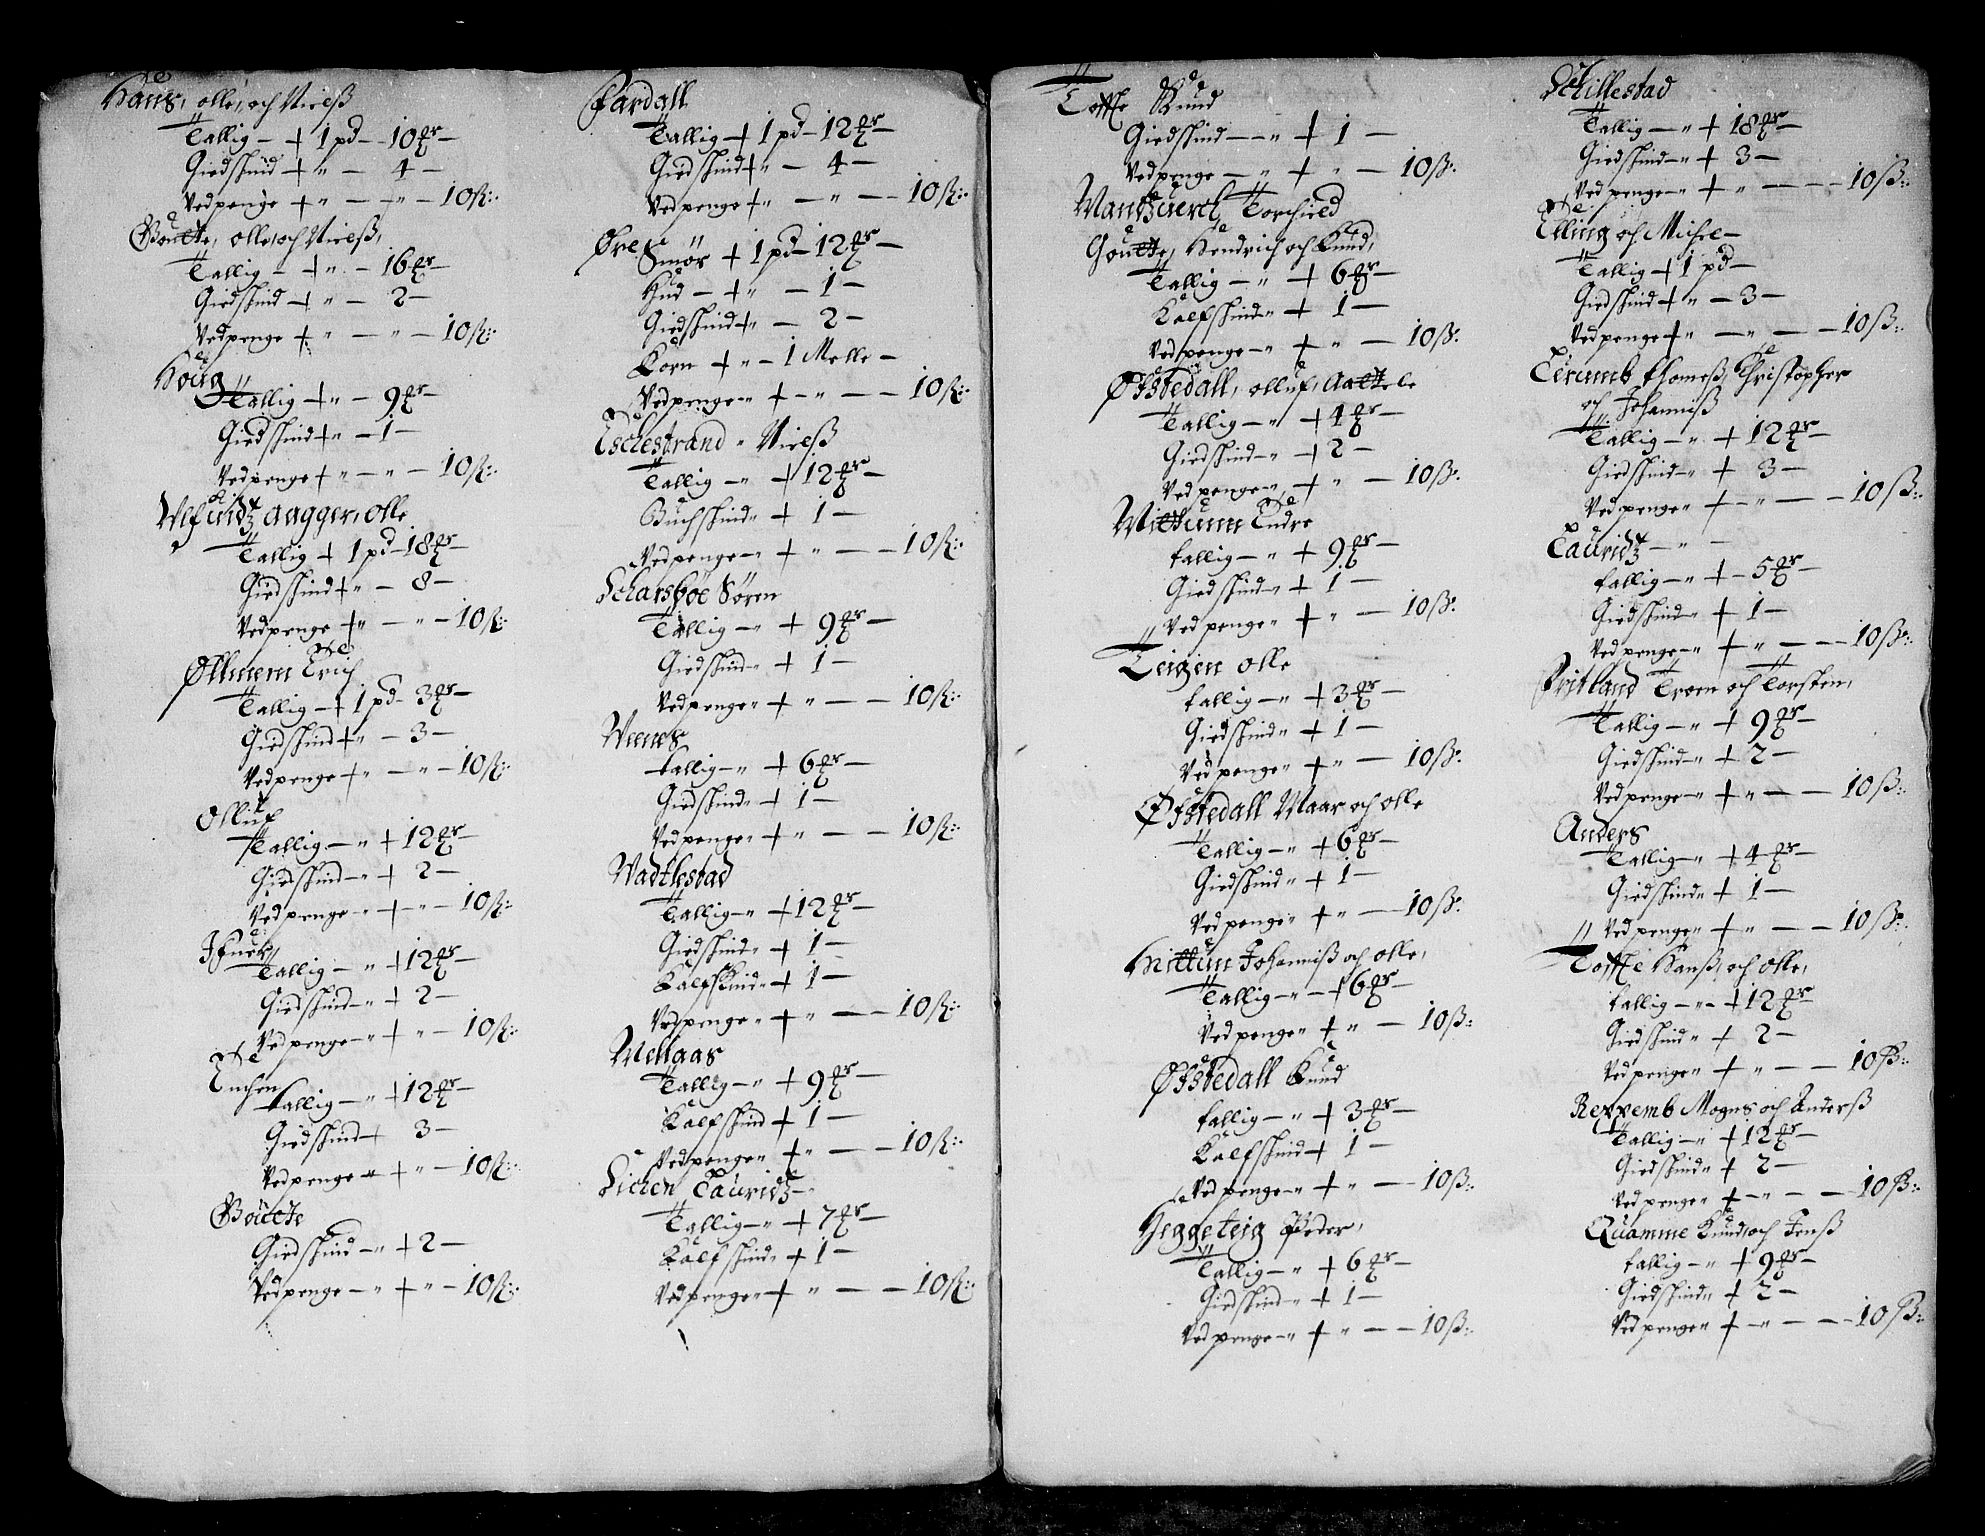 Hans, olle, och Nielß
Tallig + 1 pd – 10 mr –
Giedskind + „ – 4 –
Vedpenge + „ – „ – 10 ß:
Goutte, olle, och Nielß,
Tallig – + „ – 16 mr –
Giedskind + „ – 2 –
Vedpenge + „ – „ – 10 ß:
Houg
Tallig + „ – 9 mr –
Giedskind + „ – 1 –
Vedpenge + „ – „ – 10 ß:
Aagger, olle
Tallig + 1 pd – 18 mr –
Giedskind + „ – 8 –
Vedpenge + „ – „ – 10 ß:
Øllmem Erich
Tallig + 1 pd – 3 mr –
Giedskind + „ – 3 –
Vedpenge + „ – „ – 10 ß:
Olluf
Tallig – „ + 12 mr –
Giedskind – „ + 2 –
Vedpenge – „ + „ – 10 ß:
Tallig – „ + 12 mr –
Giedskind – „ + 2 –
Vedpenge – „ + „ – 10 ß:
Enchen
tallig – „ + 12 mr –
Giedskind + 3 –
Vedpenge – „ + „ – 10 ß:
Goutte
Giedskind – „ + 2 –
Vedpenge – „ + „ – 10 ß:
Fardall
Tallig + 1 pd – 12 mr –
Giedskind + „ – 4 –
Vedpenge + „ – „ – – 10 ß:
Øre
Smør + 1 pd – 12 mr –
Hud – + „ – 1 –
Giedskind + „ – 2 –
Korn + „ – 1 Melle –
Vedpenge „ + – „ – – 10 ß:
Eschestrand „ Nielß
Tallig – „ + 12 mr –
Buchskind „ + 1 –
Vedpenge – „ + „ – – 10 ß:
Scharsboe Søren
Tallig – „ + 9 mr –
Giedskind – „ + 1 –
Vedpenge „ + „ – – 10 ß:
Weenes
tallig – „ + 6 mr –
Giedskind „ + 1 –
Vedpenge „ + „ – – 10 ß:
Wadtlestad
Tallig – „ + 12 mr –
Giedskind „ + 1 –
Kalfskind „ + 1 –
Vedpenge „ + „ – – 10 ß:
Mellaas
Tallig – „ + 9 mr –
Kalfskind + 1 –
Vedpenge „ + „ – – 10 ß:
Lichen Lauridtz
Tallig – „ + 7 mr –
Kalfskind „ + 1 –
Vedpenge „ + „ – – 10 ß:
Tofte Knud
Giedskind – – „ + 1 –
Vedpenge – „ + „ – 10 ß:
Torchield
Goutte, Hendrich och Knud,
Tallig – „ + 6 mr –
Kalfskind „ + 1 –
Vedpenge – „ + „ – 10 ß:
Øfstedall, olluf, Aattele
Tallig – „ + 4 mr –
Giedskind – „ + 2 –
Vedpenge „ + „ – 10 ß:
Mittunn Endre
tallig – „ + 9 mr –
Giedskind „ + 1 –
Vedpenge „ + „ – 10 ß:
Teigen olle
tallig – „ + 3 mr –
Giedskind „ + 1 –
Vedpenge „ + „ – 10 ß:
Øfstedall Maar och olle
Tallig – „ + 6 mr –
Giedskind „ + 1 –
Vedpenge „ + „ – 10 ß:
Mittun Johanniß och olle,
Tallig – „ – + 6 mr –
Vedpenge „ + „ – 10 ß:
Øfstedall Knud
tallig – „ + 3 mr –
Kalfskind + 1 –
Vedpenge – „ + „ – – 10 ß:
Heggeteig Peder,
Tallig – „ + 6 mr –
Giedskind – „ + 1 –
Vedpenge – „ + „ – – 10 ß:
Schillestad
Tallig – „ + 18 mr –
Giedskind – „ + 3 –
Vedpenge – „ + „ – – – 10 ß:
Elling och Michel –
Tallig + 1 pd –
Giedskind + „ – 3 –
Vedpenge + „ – „ – – 10 ß:
Lerumb Thomeß, Christopher
och Johanniß
Tallig – „ + 12 mr –
Giedskind – „ + 3 –
Vedpenge „ + – „ – – 10 ß:
Lauridtz – „ –
tallig – „ + – 5 mr –
Giedskind „ + 1 –
Vedpenge – „ + „ – – – 10 ß:
Fritland Troen och Torsten,
Tallig – „ + 9 mr –
Giedskind – „ + 2 –
Vedpenge – „ + „ – – 10 ß:
Anders
Tallig – „ + 4 mr –
Giedskind „ + 1 –
Vedpenge „ + „ – – 10 ß:
Tofte Hanß, och olle,
tallig – „ – + 12 mr
Giedskind „ + 2 –
Vedpenge „ + „ – – 10 ß:
Reppemb Mogns och Anderß
Tallig – „ + 12 mr –
Giedskind „ + 2 –
Vedpenge „ + – „ – – 10 ß:
Quamme Knud, och Jenß
tallig – „ + 9 mr –
Giedskind „ + 2 –
Vedpenge „ + – „ – – – 10 ß: